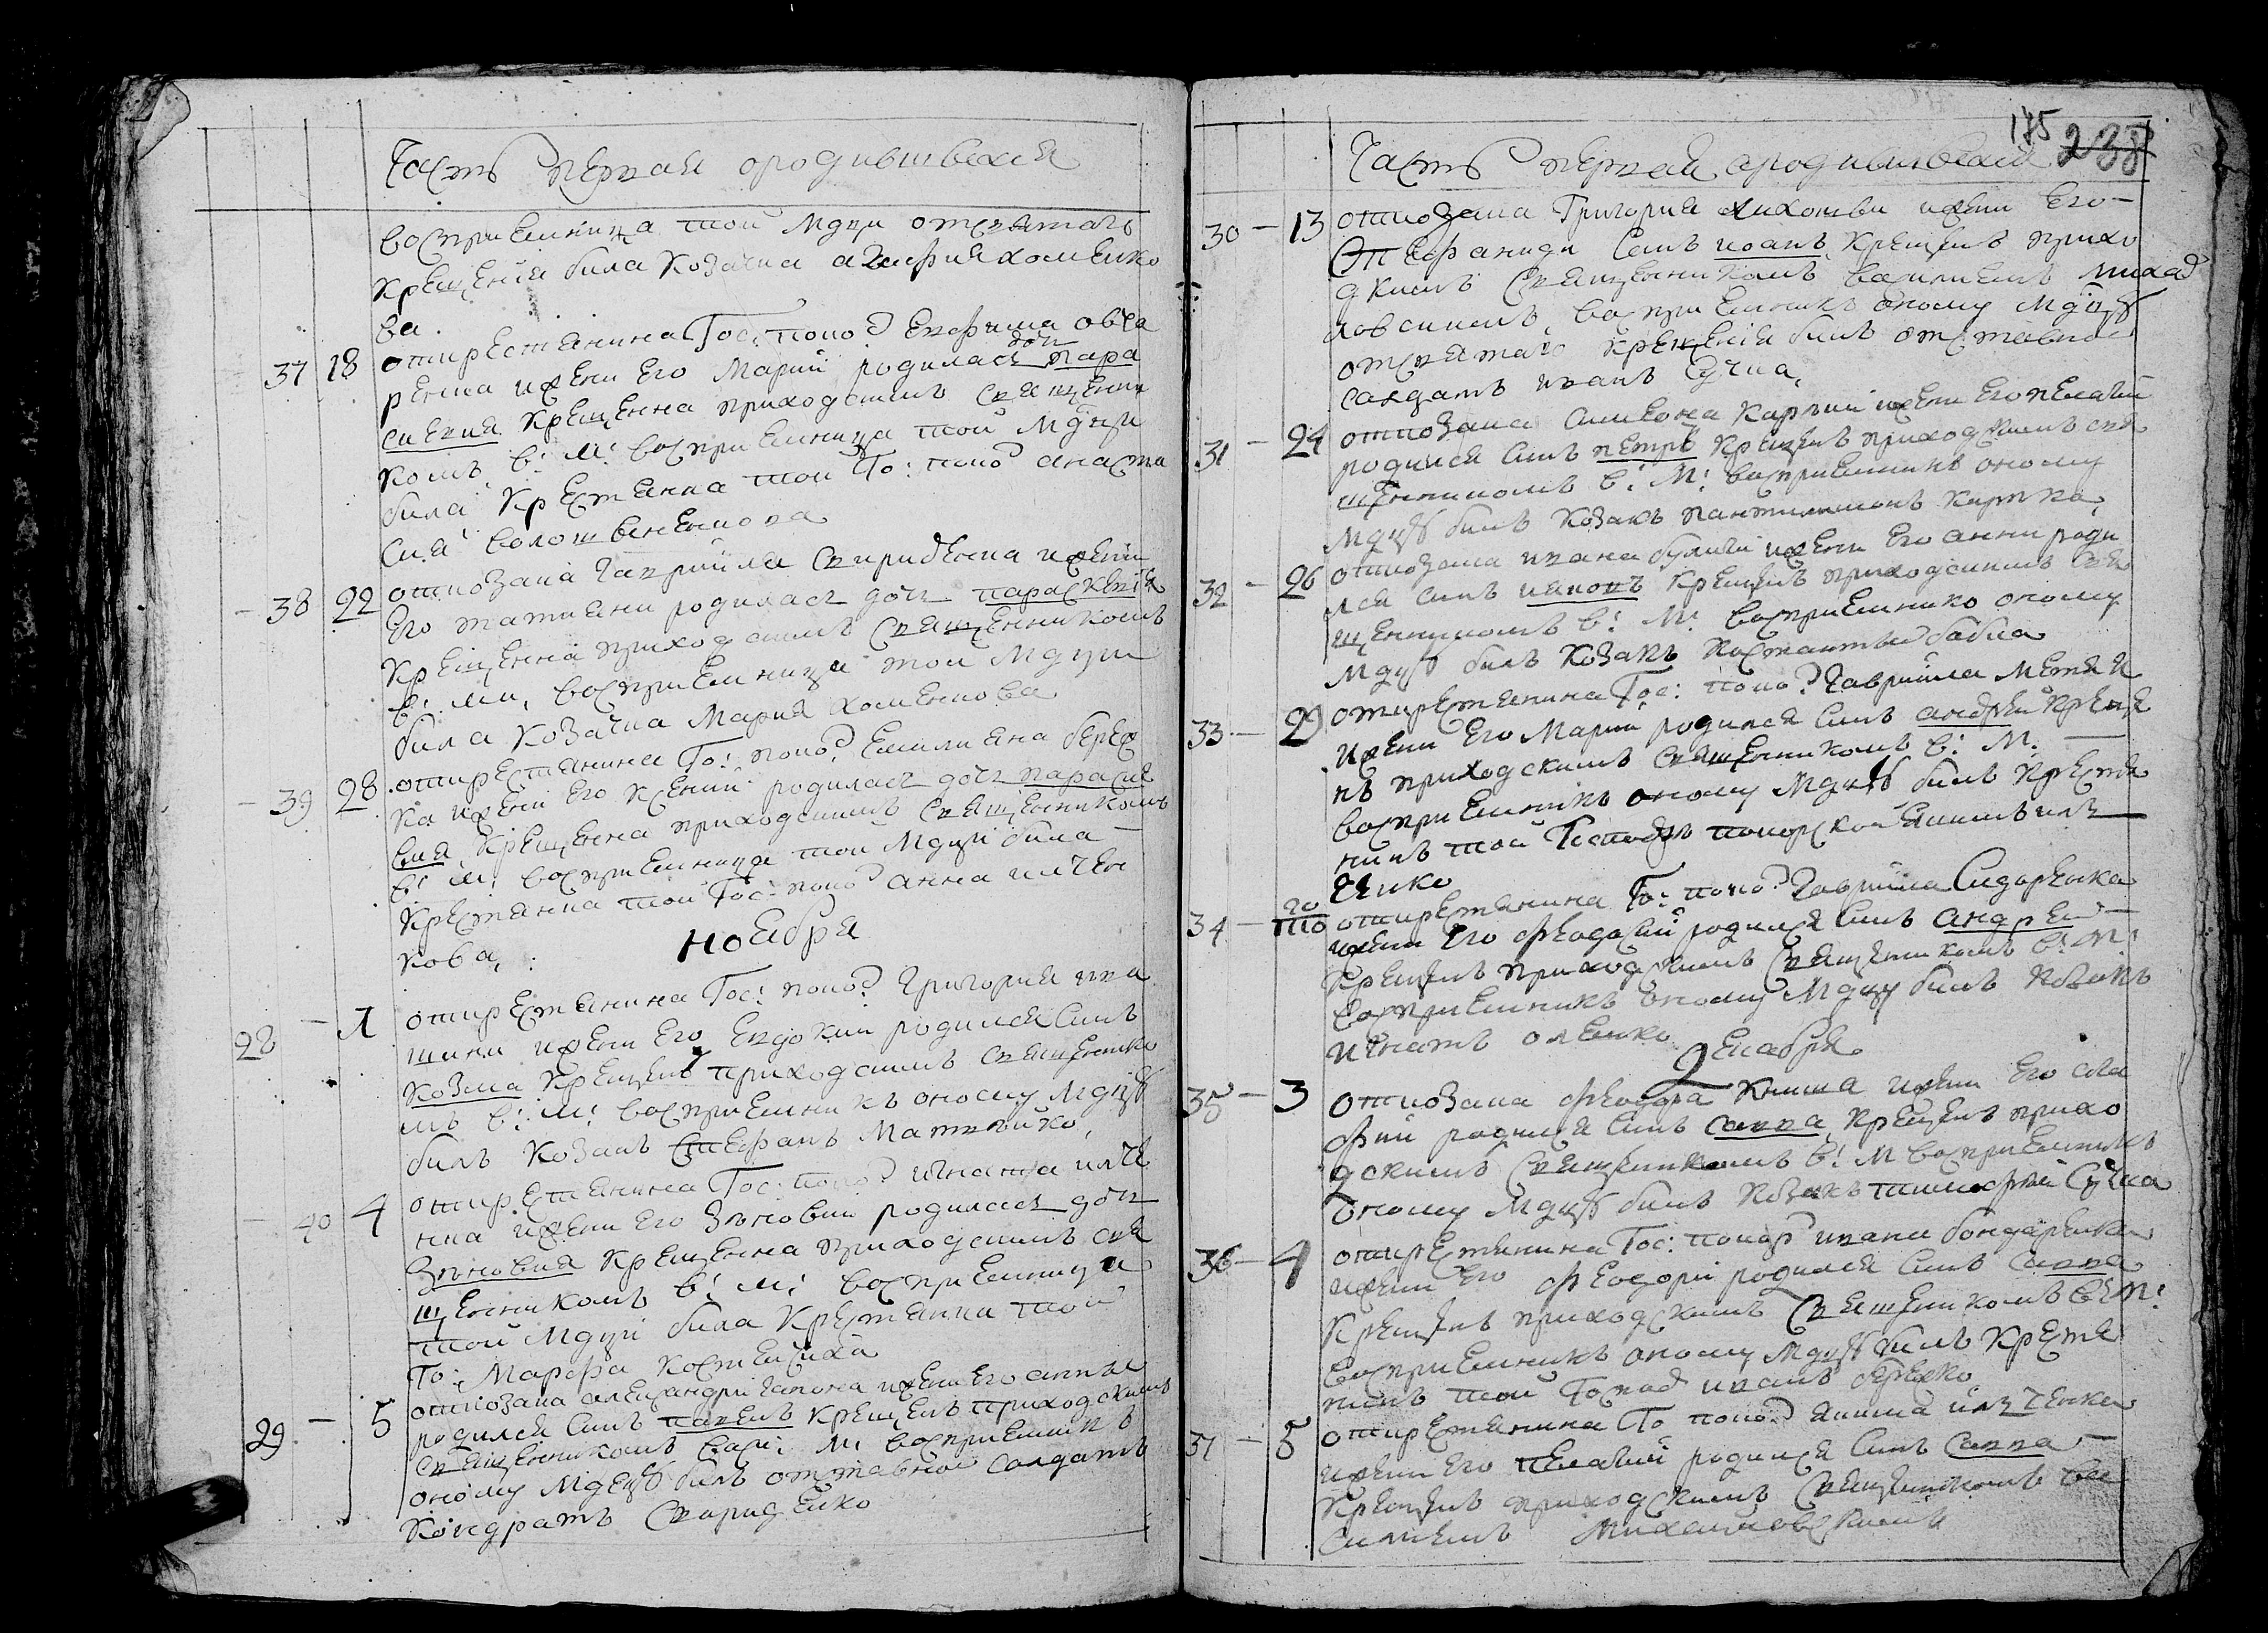 Часть первая ородившвехся
восприемница той мдци отсвятаго
крещения била козачка агафия хоменко
ва.
37 18 открестянина Гос: попо? Евфима овча
ренка ижени Его Марий родилася дочь пара
скевия крещенна приходским священни
комъ в: м: восприемница той мдци
била крестянка той Го: попо? анаста
сия волошвененкова
38 22 откозака гавриила свириденка ижени
Его татиани родилася дочь параскевія
крещенна приходским священникомъ
в: ми, восприемница той мдци
била козачка Мария хоменкова
39 28 открестянина Го: попо? Емилиана береж
ка ижени Его ксений родилася дочь параске
вия крещенна приходским священникомъ
в: м: восприемница той мдци била
крестянка той Гос: попо? анна илчен
кова,
ноября
28 1 открестянина Гос: попо? григория ива
шини ижени Его Евдокии родился синъ
козма крещенъ приходским священико
мъ в: м: восприемникъ оному мдцу
билъ козакъ Стефанъ Матвийко,
40 4 открестянина Гос: попо? игната илче
нка ижени Его Зѣновии родилася дочь
Зѣновия крещенна приходским свя
щенникомъ в: м: восприемница
той мдци била крестянка той
Го: Марфа костисиха
29 5 откозака александри гапона ижени Его анни
родился синъ павелъ крещенъ приходским
священникомъ васи: м: восприемникъ
оному мдцу билъ отставной салдатъ
кондратъ Свириденко
175 238
Часть первая ародившвехся
30 13 откозака Григория лихошви ижени Его
Стефаниди синъ иоанъ крещенъ прихо
дкимъ священникомъ василиемъ михай
ловскимъ, восприемникъ оному мдцу
отсвятаго крещения билъ отставной
салдатъ иванъ Сучка,
31 24 откозака симеона карпии ижени Его пелагии
родился синъ петръ крещенъ приходскимъ свя
щенникомъ в: м: восприемникъ оному
мдцу билъ козакъ пантилимонъ картка,
32 26 откозака ивана булиги ижени Его анни роди
лся синъ иаковъ крещенъ приходскимъ свя
щенникомъ в: м: восприемнико оному
мдцу билъ козакъ костантий бабка
33 29 открестянина Гос: попо? гавриила метяи
ижени Его Марии родился синъ андрей креще
нъ приходскимъ священникомъ в: м.
восприемникъ оному мдцу билъ крестя
нинъ той Господи попорской якимъ илъ
ченко
34 то го открестянина Го: попо? гавриила Сидоренка
ижени Его феодосии родился синъ андрей
крещенъ приходскимъ священикомъ в: м:
восприемникъ оному мдцу билъ козакъ
игнатъ оленко
Декабря
35 3 откозака феодора книша ижени Его ага
фии родился синъ савва, крещенъ прихо
дскимъ священикомъ в: м восприемникъ
оному мдцу билъ козакъ тимофий Сучка
36 4 открестянина Гос: попор? ивана бондаренка
ижени Его феодори родился синъ савва
крещенъ приходскимъ священикомъ в: м:
восприемникъ оному мдцу билъ крестя
нинъ той Господ иванъ бережко
37 5 открестянина Го попо? якима илъченка
ижени Его пелагии родился синъ савва
крещенъ приходскимъ священикомъ ва
силиемъ михаиловскимъ